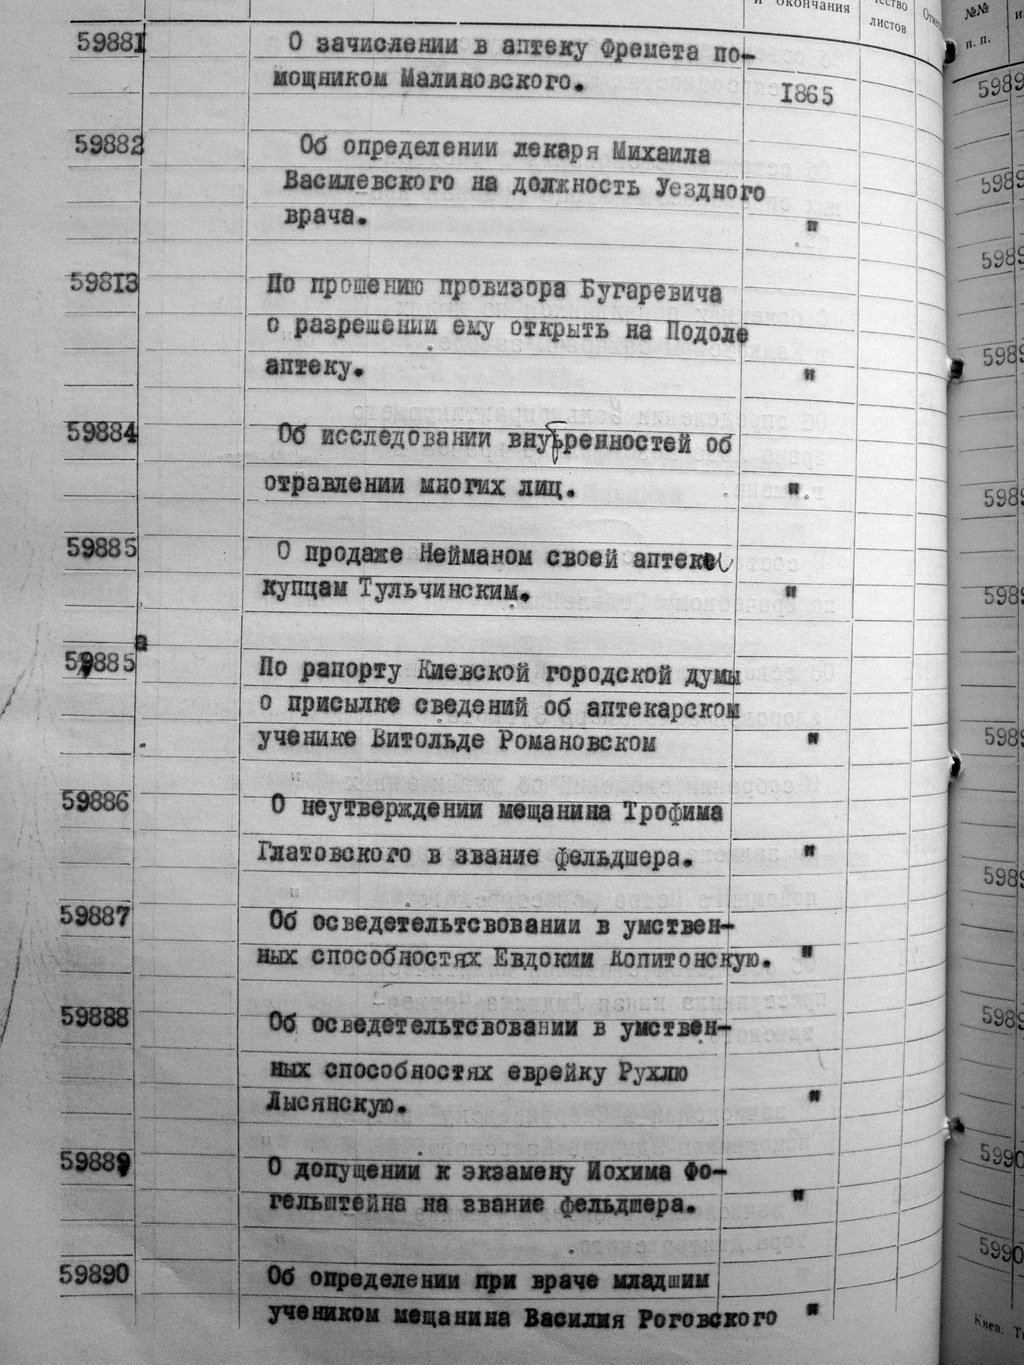 и окончания
листов
№№
п. п.
59881 О зачислении в аптеку Фремета по-
мощником Малиновского.
1865
59882 Об определении лекаря Михаила
Василевского на должность Уездного
врача. "
59813 По прошению провизора Бугаревича
о разрешении ему открыть на Подоле
аптеку. "
59884 Об исследовании внутренностей об
отравлении многих лиц. "
59885 О продаже Нейманом своей аптеки
купцам Тульчинским. "
а
59885 По рапорту Киевской городской думы
о присылке сведений об аптекарском
ученике Витольде Романовском "
59886 О неутверждении мещанина Трофима
Глатовского в звание фельдшера. "
59887 Об осведетельтсвовании в умствен-
ных способностях Евдокии Копитонскую. "
59888 Об осведетельтсвовании в умствен-
ных способностях еврейку Рухлю
Лысянскую. "
59889 О допущении к экзамену Иохима Фо-
гельштейна на звание фельдшера. "
59890 Об определении при враче младшим
учеником мещанина Василия Роговского "